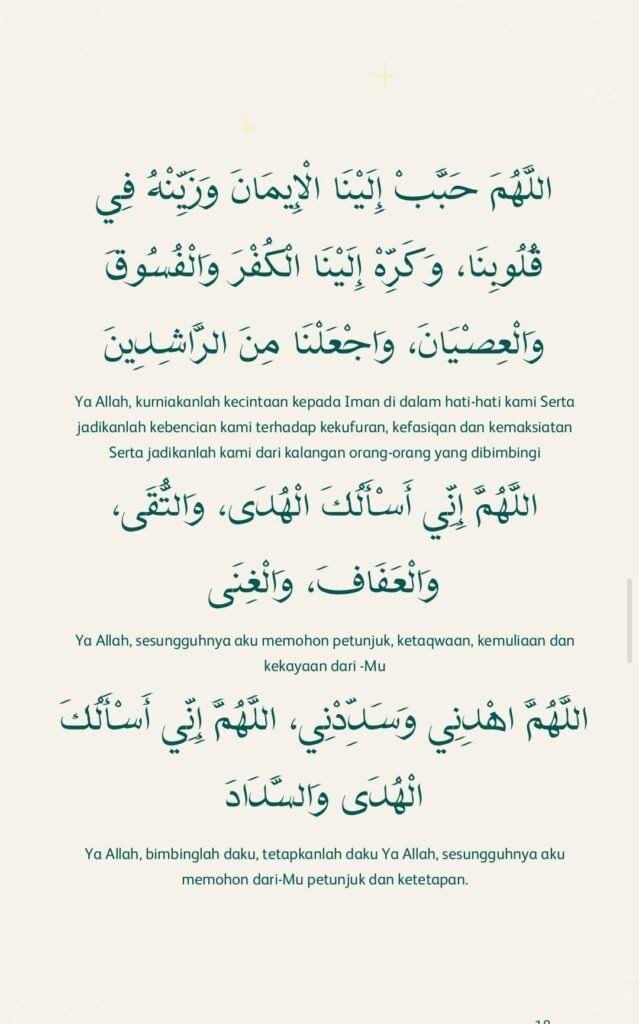 اللَّهُمَ حَبَّبْ إِلَيْنَا الْإِيمَانَ وَزَيِّنْهُ فِي
قُلُوبِنَا، وَكَرِّهْ إِلَيْنَا الْكُفْرَ وَالْفُسُوقَ
وَالْعِصْيَانَ، وَاجْعَلْنَا مِنَ الرَّاشِدِينَ
Ya Allah, kurniakanlah kecintaan kepada Iman di dalam hati-hati kami Serta
jadikanlah kebencian kami terhadap kekufuran, kefasiqan dan kemaksiatan
Serta jadikanlah kami dari kalangan orang-orang yang dibimbingi
اللَّهُمَّ إِنِّي أَسْأَلُكَ الْهُدَى، وَالتُّقَى،
وَالْعَفَافَ، وَالْغِنَى
Ya Allah, sesungguhnya aku memohon petunjuk, ketaqwaan, kemuliaan dan
kekayaan dari -Mu
اللَّهُمَّ اهْدِنِي وَسَدِّدْنِي، اللَّهُمَّ إِنِّي أَسْأَلُكَ
الْهُدَى وَالسَّدَادَ
Ya Allah, bimbinglah daku, tetapkanlah daku Ya Allah, sesungguhnya aku
memohon dari-Mu petunjuk dan ketetapan.